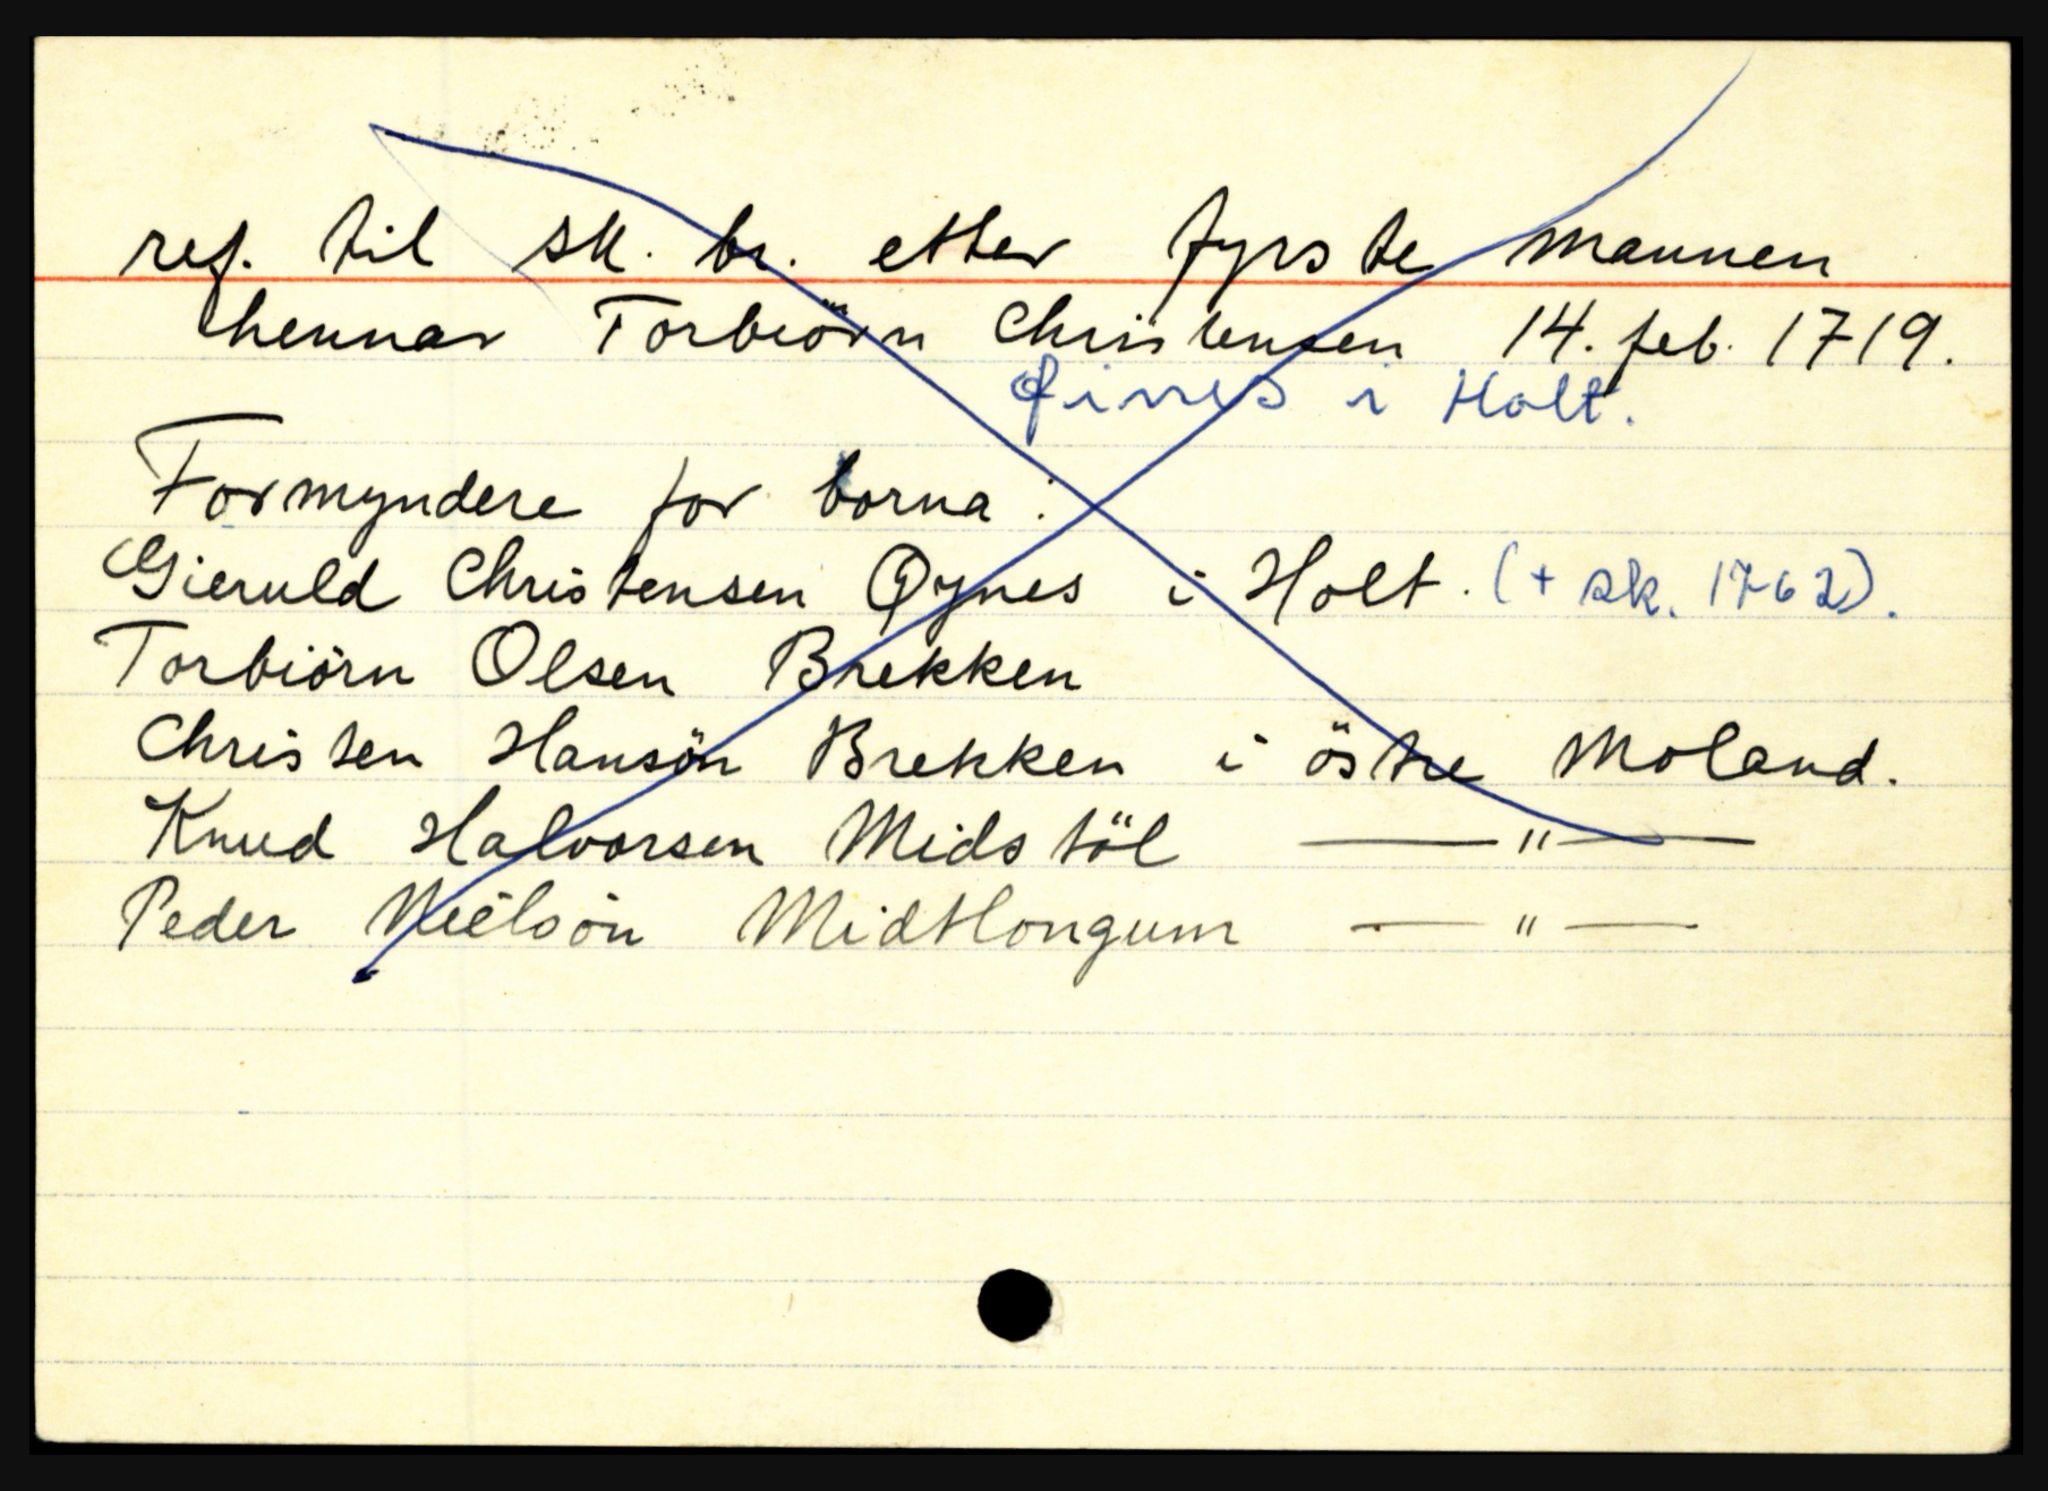 ref. til sk. br. etter fyrste mannen
hennar Torbiörn Christensen 14. feb. 1719.
finnes i Holt.
Formyndere for borna :
Gieruld Christensen Qynes i Holt. (+ sk. 1762).
Torbiörn Olsen Brekken
Christen Hansön Brekken i östre Moland.
Knud Halvorsen Midstöl —〃—
Peder Nielsön Midtlongum —〃—